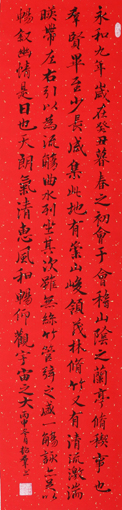 永和九年歲在癸丑暮春之初會于會稽山陰之蘭亭脩稧事也
羣賢畢至少長咸集此地有崇山峻領茂林脩竹又有清流激湍
暎帶左右引以為流觴曲水列坐其次雖無絲竹管弦之盛一觴一詠亦足以
暢敘幽情是日也天朗氣清惠風和暢仰觀宇宙之大
丙申